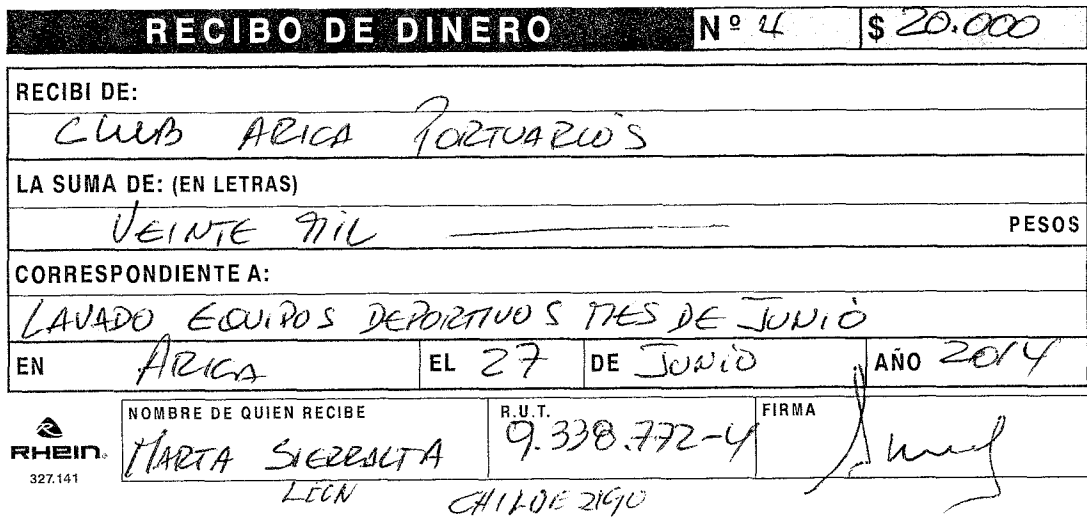 RECIBO DE DINERO Nº 4 $ 20.000
RECIBI DE:
CLUB ARICA PORTUARIOS
LA SUMA DE: (EN LETRAS)
VEINTE MIL PESOS
CORRESPONDIENTE A:
LAVADO EQUIPOS DEPORTIVOS MES DE JUNIO
EN ARICA EL 27 DE JUNIO AÑO 2014
NOMBRE DE QUIEN RECIBE R.U.T. FIRMA
RHEIN® MARTA SIERRALTA 9.338.772-4
327.141 LEON CHILOE 2190